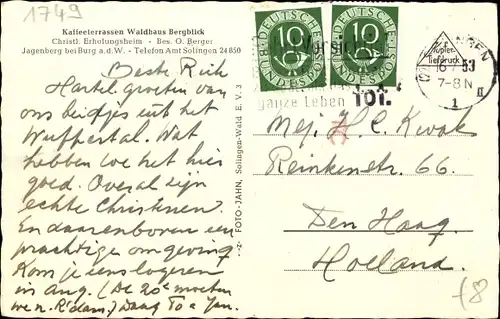 1749
Kaffeeterrassen Waldhaus Bergblick
Christl. Erholungsheim - Bes. O. Berger
Jagenberg bei Burg a.d.W. - Telefon Amt Solingen 24850
Beste Riek
Hartel. groeten van
ons beidjes uit het
Wuppertal. Wat
hebben we het hier
goed. Overal zijn
echte Christenen.
En daarenboven een
prachtige omgeving
Kom je eens logeren
in aug. (De 20e moeten
we n. R'dam.) Daag To & Jan.
-z- FOTO-JAHN, Solingen-Wald E.V. 3
DEUTSCHE BUNDESPOST
10
DEUTSCHE BUNDESPOST
10
ganze Leben
101.
Kupfer-
tiefdruck
53
7-8 N
1
II
Mej. H. C. Kwak
Reinkenstr. 66.
Den Haag.
Holland.